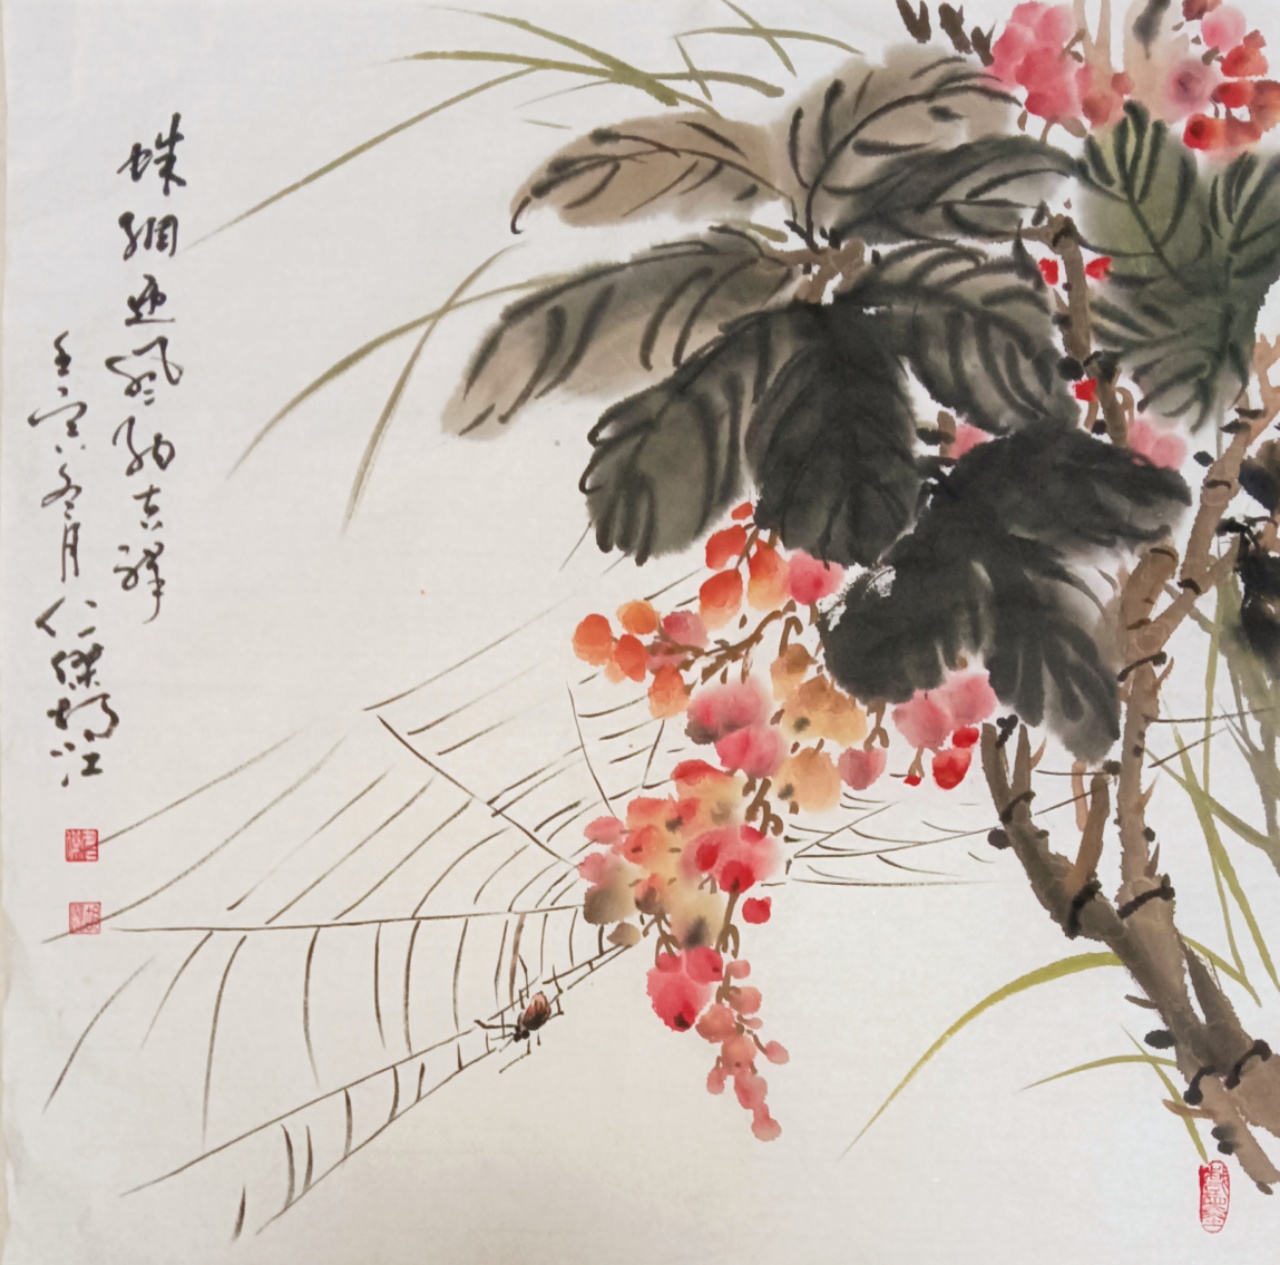 蛛網迎風納吉祥
壬寅冬月仁傑㧍江